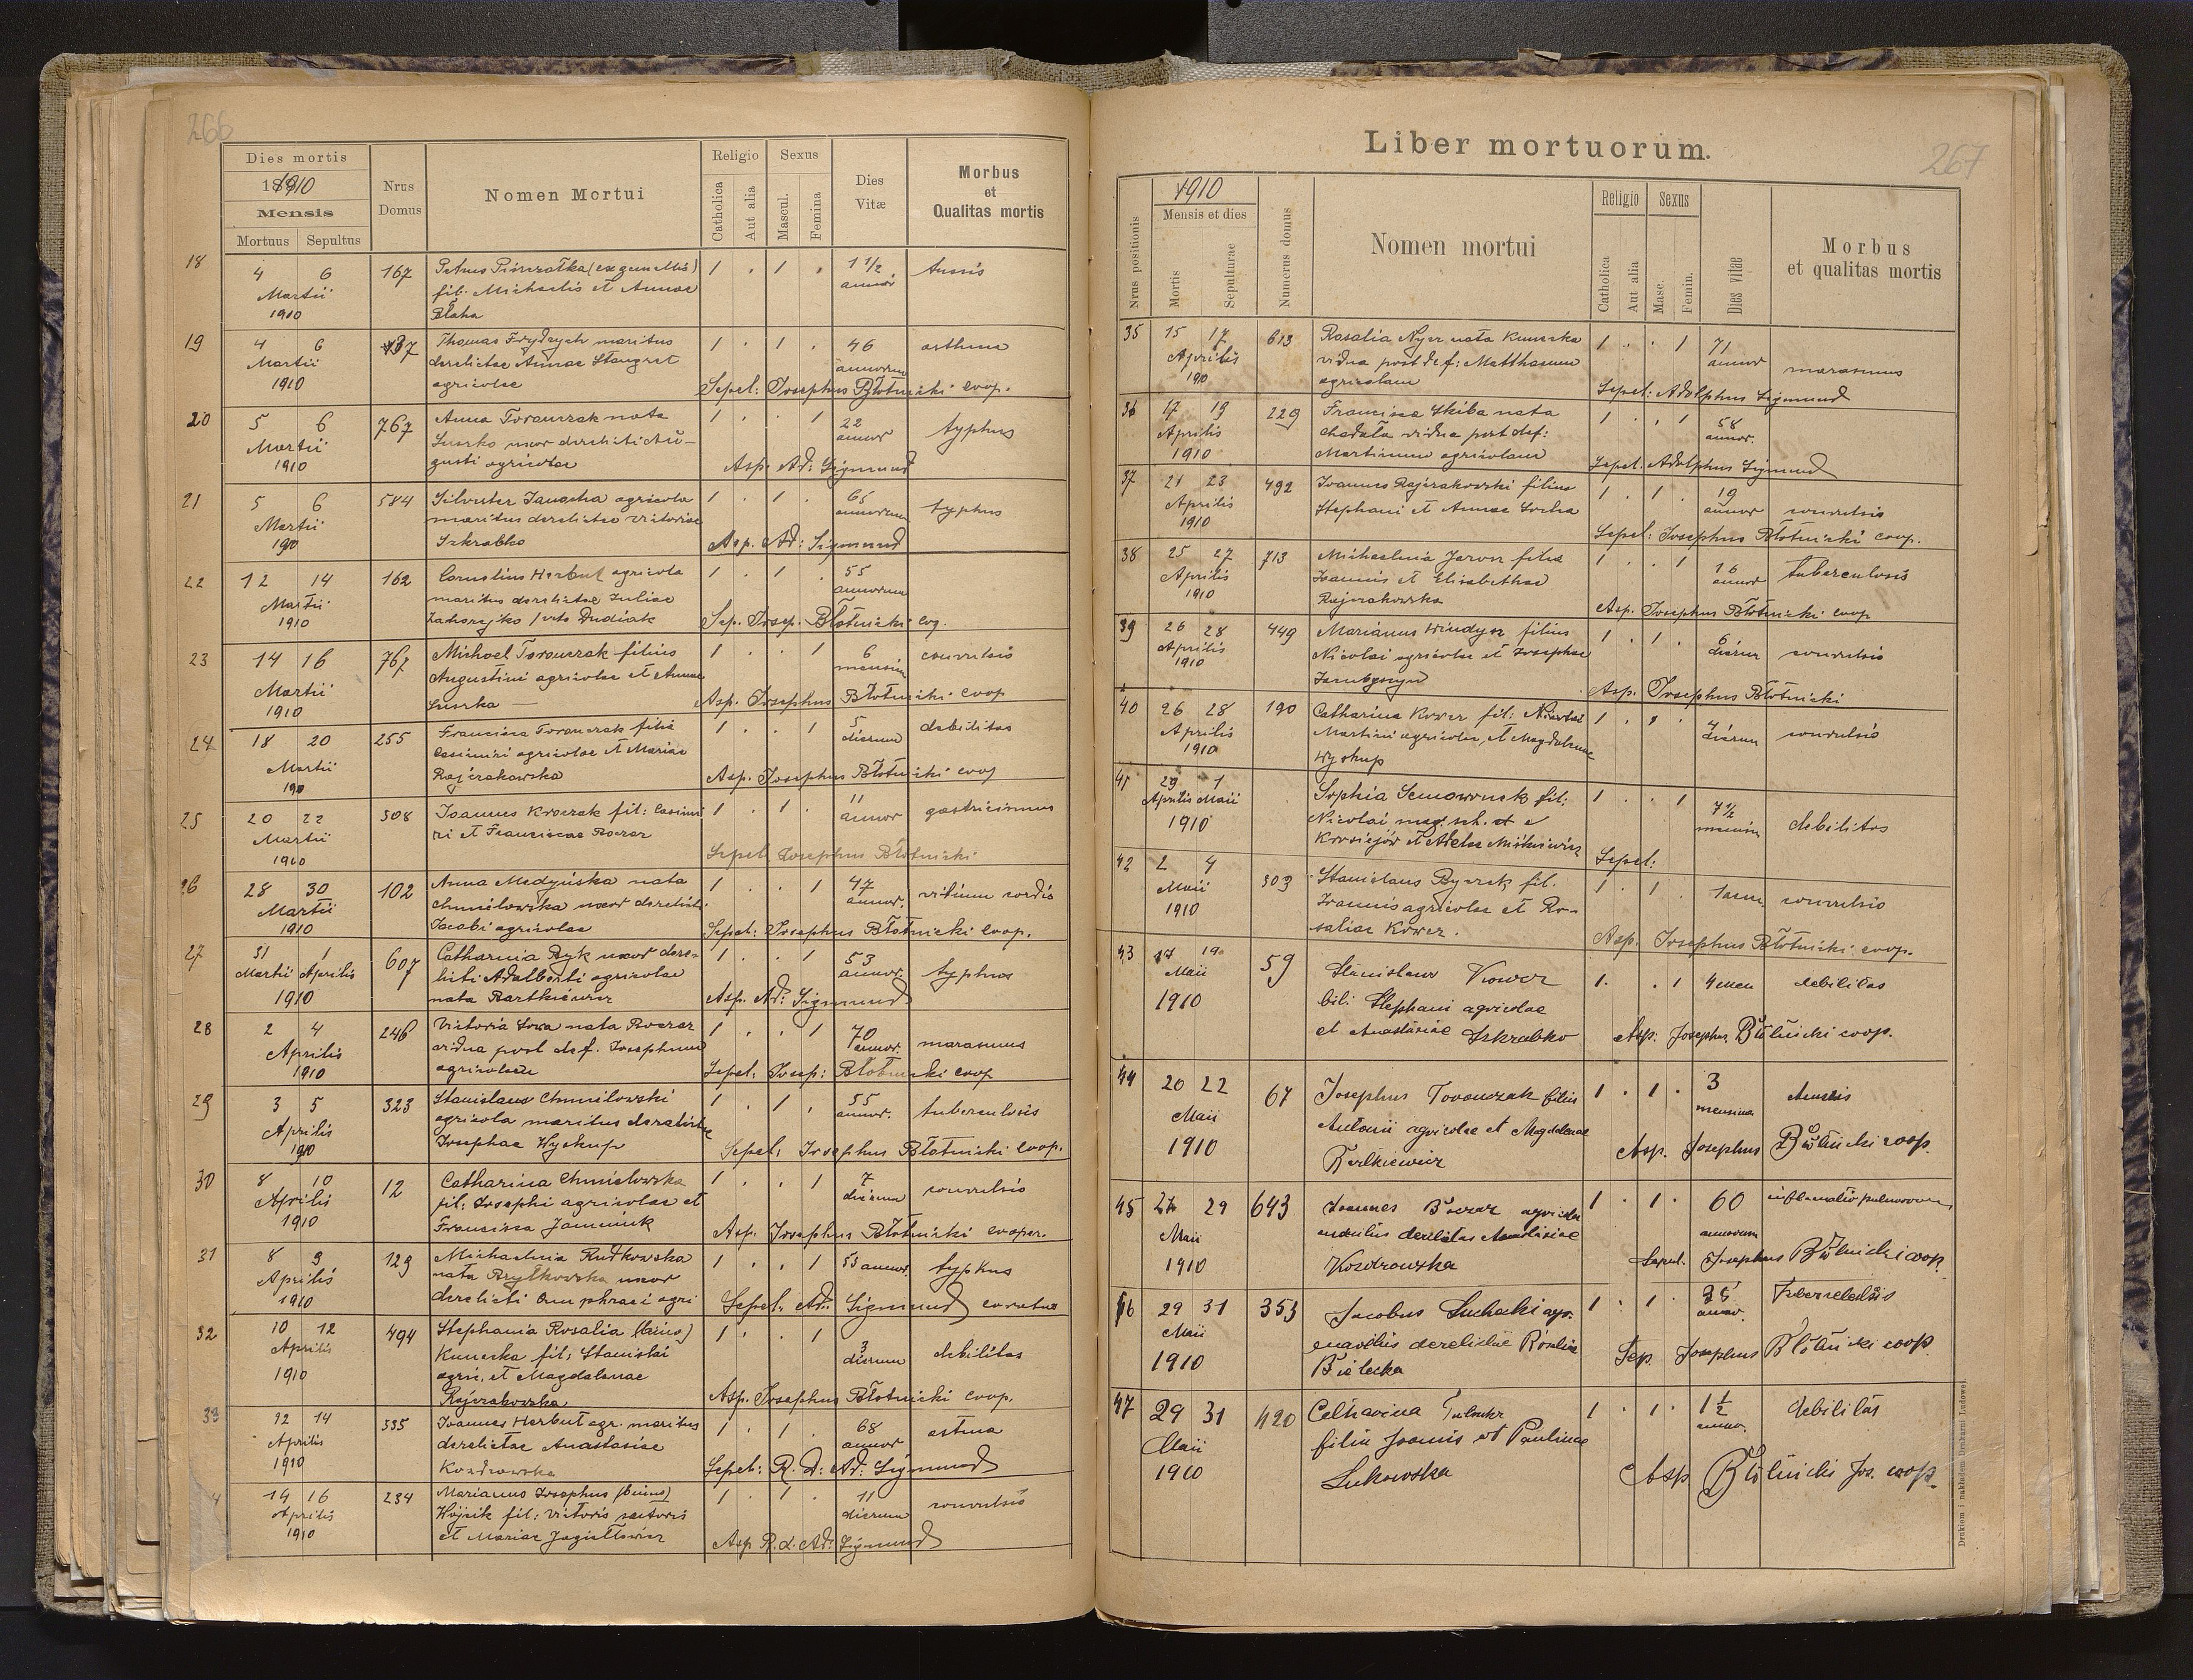 266
Dies mortis
1910
Mensis
Mortuus Sepultus
Nrus Domus
Nomen Mortui
Religio
Catholica
Aut alia
Sexus
Mascul.
Femina
Dies Vitæ
Morbus et Qualitas mortis
18 4 6 167 Petrus (ex gemellis) 1 . 1 . 1 1/2 tussis
Martii fil. Michaelis et Annae annor.
1910 Błaha
19 4 6 Thomas Frydrych maritus 1 . 1 . 46 asthma
Martii derelictae Annae Stangret annorum
1910 agricolae Sepel: Josephus Błotnicki coop.
20 5 6 767 Anna Toronczak nata 1 . . 1 22 typhus
Martii uxor derelicti Au- annor
1910 gusti agricolae Asp. Ad: Sigmund
21 5 6 584 Silvester agricola 1 . 1 . 65 typhus
Martii maritus derelictae Victoriae annorum
1910 Iskrabko Asp. Ad: Sigmund
22 12 14 162 Cornelius Herbut agricola 1 . 1 . 55
Martii maritus derelictae Juliae annorum
1910 Dudiak Sep. Josep. Błotnicki
23 14 16 767 Michael Toronczak filius 1 . . 1 6 convulsio
Martii Augustini agricolae et Annae mensium
1910 Asp. Josephus Błotnicki coop
24 18 20 255 Francisca Toronczak filia 1 . . 1 5 debilitas
Martii Casimiri agricolae et Mariae dierum
1910 Rajczakowska Asp. Josephus Błotnicki coop
25 20 22 308 Joannes Kroczak fil: Casimi 1 . 1 . 11 gastricismus
Martii ri et Franciscae Boczar annor
1910 Sepel Josephus Błotnicki
26 28 30 102 Anna Medyńska nata 1 . . 1 47 vitium cordis
Martii Chmilowska uxor derelicti annor.
1910 Jacobi agricolae Sepel: Josephus Błotnicki coop.
27 31 1 607 Catharina Byk uxor dere- 1 . . 1 53 typhus
Martii Aprilis licti Adalberti agricolae annor.
1910 nata Bartkiewicz Asp. Ad: Sigmund
28 2 4 246 Victoria Sowa nata Boczar 1 . . 1 70 marasmus
Aprilis vidua post def. Josephum annor.
1910 agricolam Sepel: Josep: Błotnicki coop
29 3 5 323 Stanislaus Chmilowski 1 . 1 . 55 tuberculosis
Aprilis agricola maritus derelictae annor.
1910 Josephae Wyskup Sepel: Josephus Błotnicki coop.
30 8 10 12 Catharina Chmielowska 1 . . 1 7 convulsio
Aprilis fil: Josephi agricolae et dierum
1910 Francisca Asp. Josephus Błotnicki cooper.
31 8 9 129 Michaelina Rudkowska 1 . . 1 53 annor. typhus
Aprilis nata Brytkowska uxor
1910 derelicti Onuphraei agri Sepel. Ad: Sigmund curatus
32 10 12 494 Stephania Rosalia (binus) 1 . . 1 3 debilitas
Aprilis Kunerka fil: Stanislai dierum
1910 agric. et Magdalenae
Rajczakowska Asp. Josephus Błotnicki coop.
33 12 14 335 Joannes Herbut agr. maritus 1 . 1 . 68 astma
Aprilis derelictae Anastasiae annor
1910 Kozdrowska Sepel: R. d: Ad: Sigmund
4 14 16 234 Marianus Josephus (binus) 1 . 1 . 11 convulsio
Aprilis Wójcik fil: Victoris sartoris dierum
1910 et Mariae Jagiełłowicz Asp R. d. Ad: Sigmund
Liber mortuorum.
267
Nrus positionis
1910
Mensis et dies
Mortis
Sepulturae
Numerus domus
Nomen mortui
Religio
Catholica
Aut alia
Sexus
Masc.
Femin.
Dies vitae
Morbus et qualitas mortis
35 15 17 613 Rosalia nata Kunerka 1 . . 1 71 marasmus
Aprilis vidua post def: Matthaeum annor
1910 agricolam Sepel: Adolphus Sigmund
36 17 19 229 Francisca Skiba nata 1 . . 1 58
Aprilis vidua post def: annor.
1910 Martinum agricolam Sepel. Adolphus Sigmund
37 21 23 492 Joannes Rajczakowski filius 1 . 1 . 19 convulsio
Aprilis Stephani et Annae annor
1910 Sepel: Josephus Błotnicki coop.
38 25 27 713 Michaelina filia 1 . . 1 16 tuberculosis
Aprilis Joannis et Elisabethae annor
1910 Rajczakowska Asp. Josephus Błotnicki coop
39 26 28 449 Marianus Windysz filius 1 . 1 . 6 convulsio
Aprilis Nicolai agricolae et Josephae dierum
1910 Asp. Josephus Błotnicki
40 26 28 190 Catharina Kower fil: 1 . 1 . 4 convulsio
Aprilis Martini agricolae et Magdalenae dierum
1910 Wyskup
41 29 1 Sophia fil: 1 . . 1 7 1/2 debilitas
Aprilis Maii Nicolai mag. sch. mensium
1910 et Adelae Miśkiewicz Sepel:
42 2 4 303 Stanislaus fil. 1 . 1 . convulsio
Maii Joannis agricolae et Ro-
1910 saliae Kower. Asp. Josephus Błotnicki coop.
43 17 19 59 Stanislaus Kower 1 . . 1 4 men debilitas
Maii fili Stephani agricolae
1910 et Anastasiae Iskrabko Asp: Josephus Błotnicki coop.
44 20 22 67 Josephus Toronczak filius 1 . 1 . 3 tussis
Maii Antonii agricolae et Magdalenae mensium
1910 Bartkiewicz Asp. Josephus Błotnicki coop.
45 27 29 643 Joannes Boczar agricola 1 . 1 . 60 inflamatio pulmonum
Maii maritus derelictae Anastasiae annorum
1910 Kozdrowska Sepel. Josephus Błotnicki coop.
46 29 31 353 Jacobus Suchecki agr. 1 . 1 . 35 Tuberculosis
Maii maritus derelictae Rosaliae annor.
1910 Bielecka Sep. Josephus Błotnicki coop
47 29 31 420 Catharina 1 . 1 . 1 1/2 debilitas
Maii filia Joannis et Paulinae annor.
1910 Lukowska Asp Błotnicki Jos. coop.
Drukiem i nakładem Drukarni Ludowej